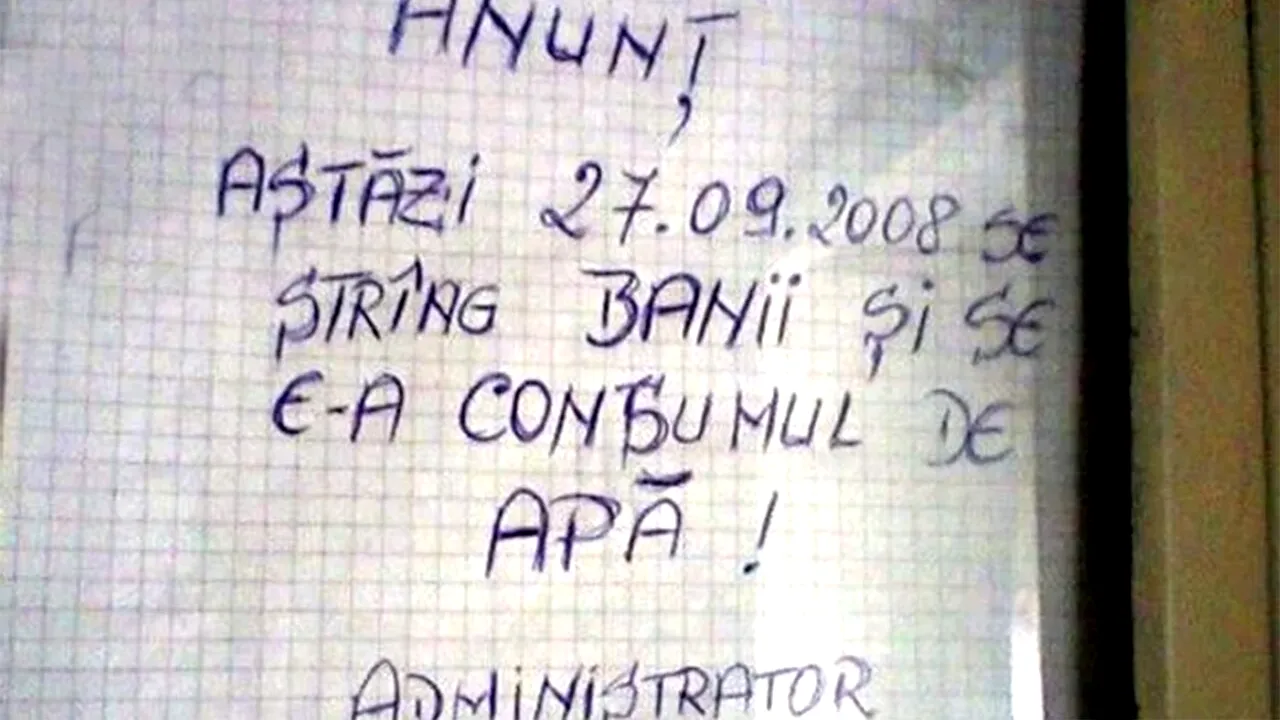 ANUNȚ
AȘTĂZI 27.09.2008 SE
ȘTRÎNG BANII ȘI SE
E-A CONSUMUL DE
APĂ !
ADMINISTRATOR